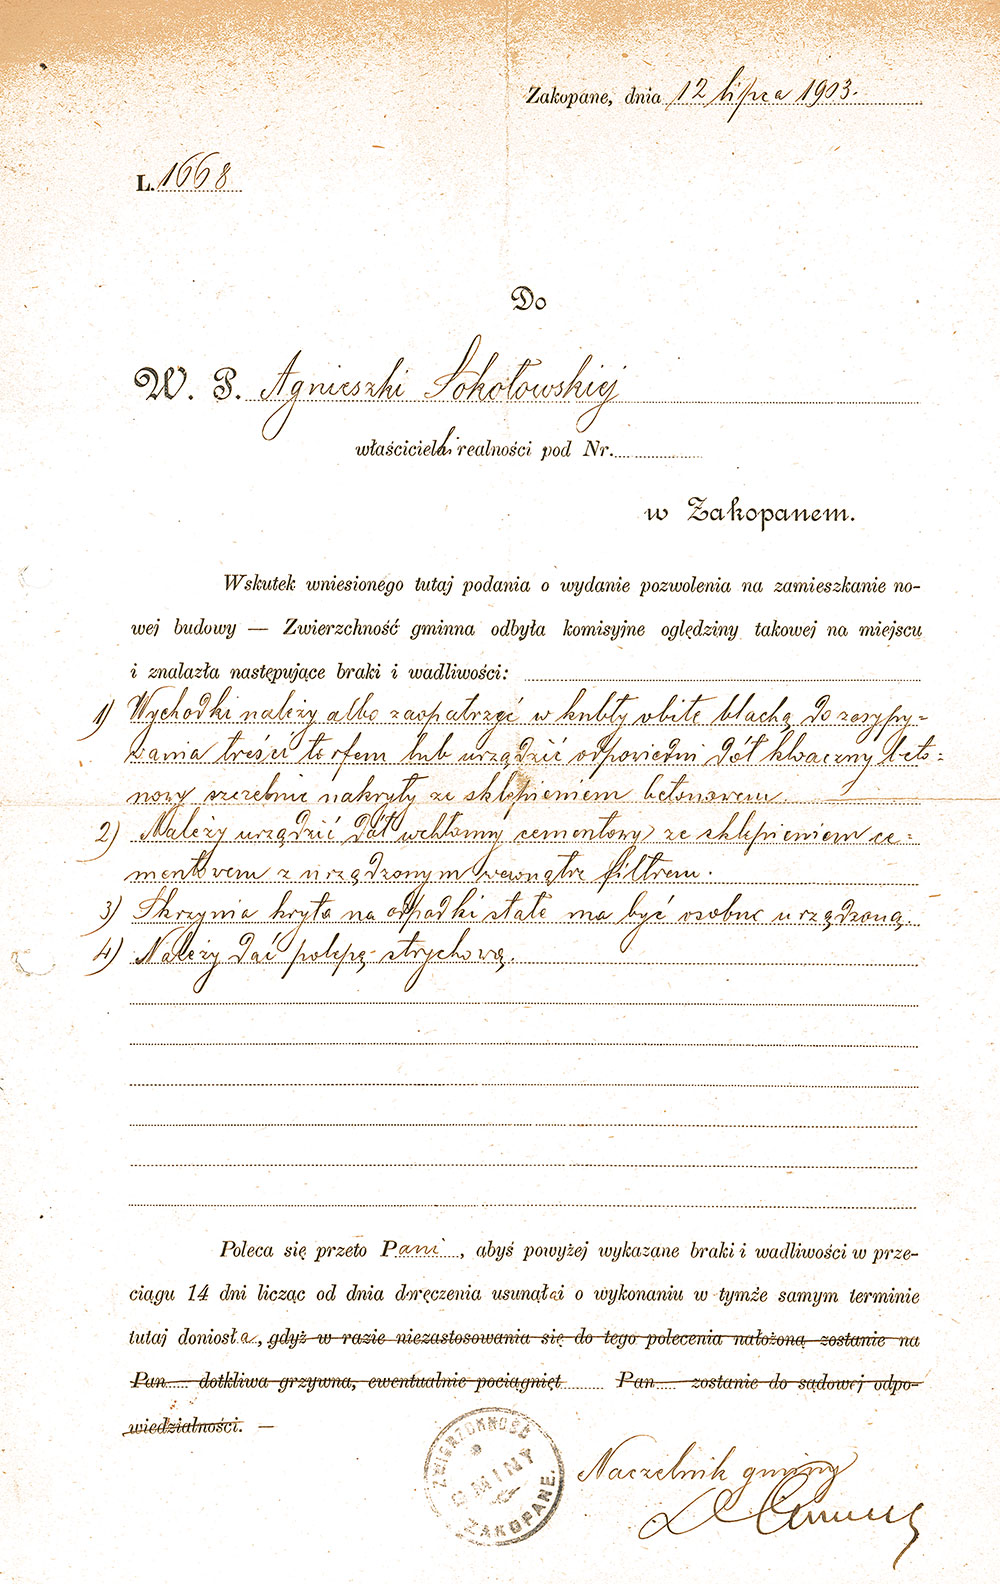 Zakopane, dnia 12 lipca 1903.
L. 1668
Do
W. P. Agnieszki Sokołowskiej
właścicielki realności pod Nr.
w Zakopanem.
Wskutek wniesionego tutaj podania o wydanie pozwolenia na zamieszkanie no-
wej budowy — Zwierzchność gminna odbyła komisyjne oględziny takowej na miejscu
i znalazła następujące braki i wadliwości:
1) Wychodki należy albo zaopatrzyć w kubły obite blachą do zasypy-
wania treści torfem lub urządzić odpowiedni dół kloaczny beto-
nowy szczelnie nakryty ze sklepieniem betonowem.
2) Należy urządzić dół wchłonny cementowy ze sklepieniem ce-
mentowem z urządzonym wewnątrz filtrem.
3) Skrzynia kryta na odpadki stałe ma być osobno urządzoną.
4) Należy dać polepę strychową.
Poleca się przeto Pani, abyś powyżej wykazane braki i wadliwości w prze-
ciągu 14 dni licząc od dnia doręczenia usunęła i o wykonaniu w tymże samym terminie
tutaj doniosła, gdyż w razie niezastosowania się do tego polecenia nałożoną zostanie na
Pan dotkliwa grzywna, ewentualnie pociągnięt Pan zostanie do sądowej odpo-
wiedzialności. —
ZWIERZCHNOŚĆ
GMINY
ZAKOPANE.
Naczelnik gminy